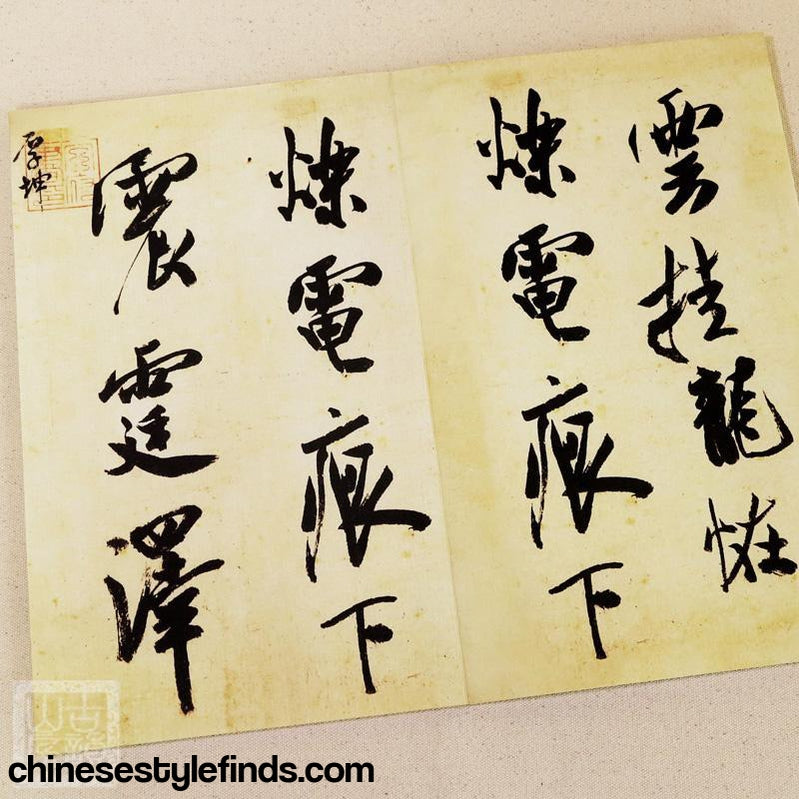 雲挂龍怪
爍電痕下
爍電痕下
震霆澤
厚坤
chinesestylefinds.com